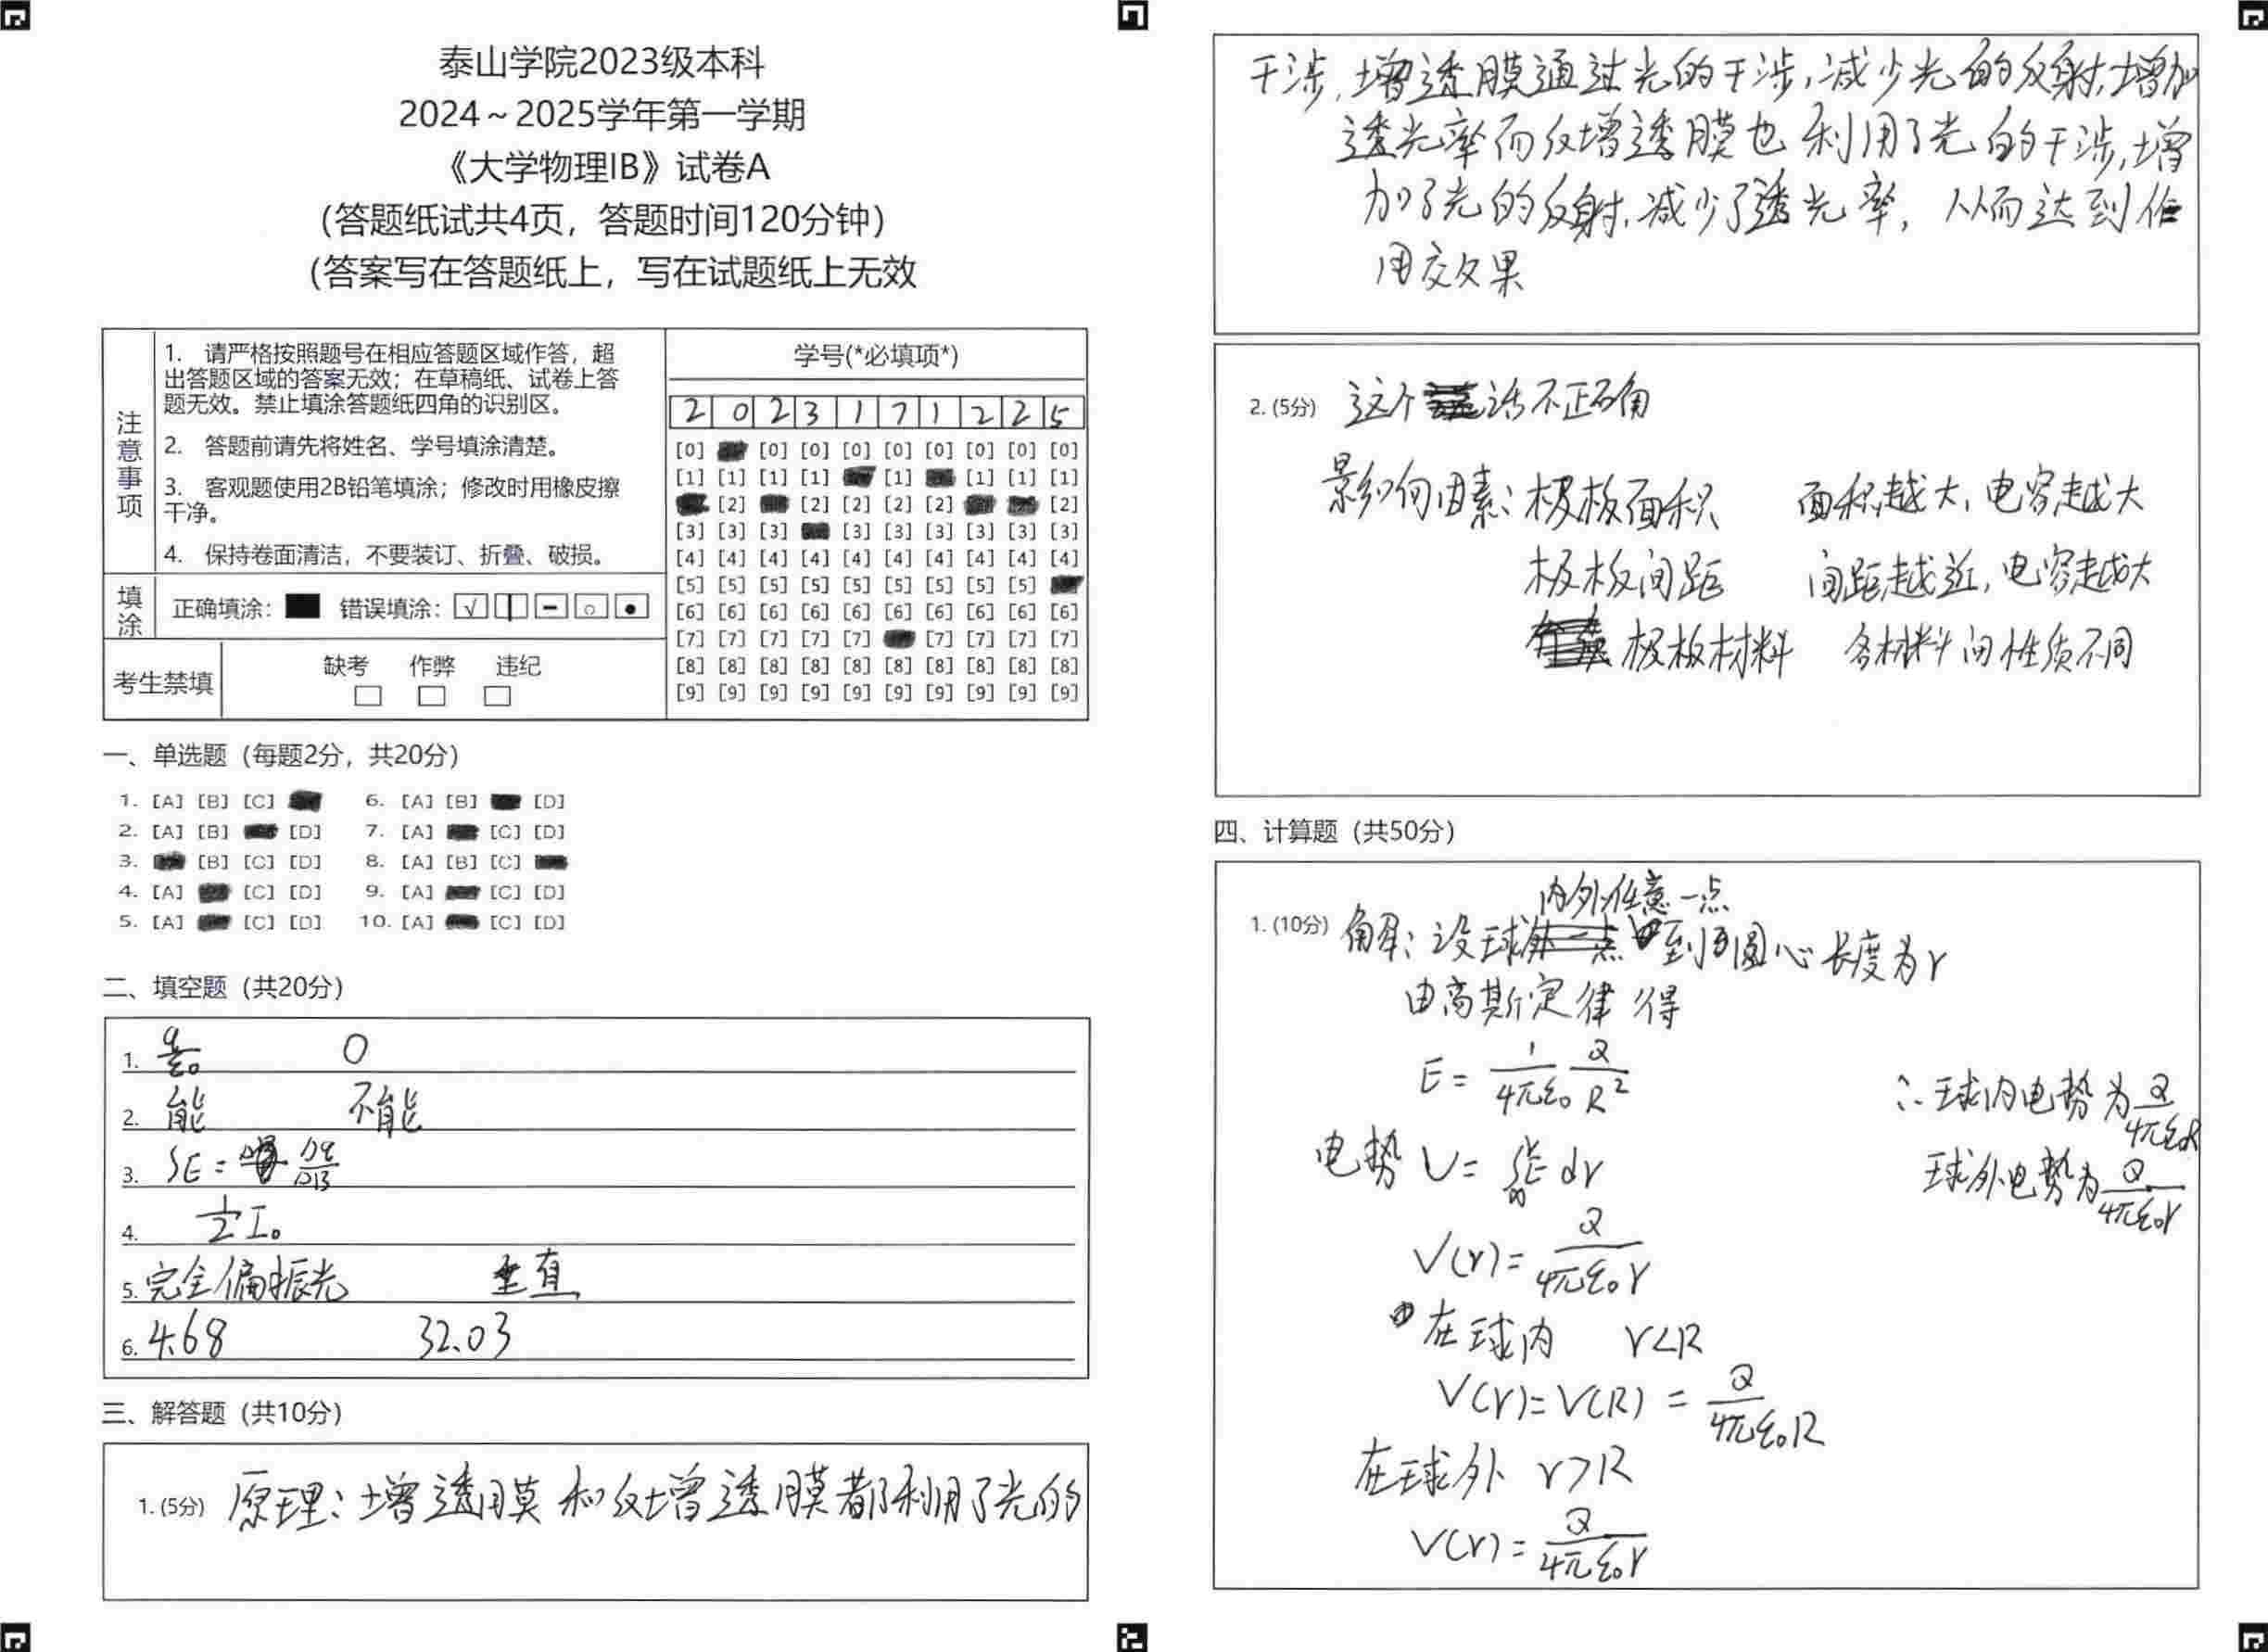 泰山学院2023级本科
2024～2025学年第一学期
《大学物理IB》试卷A
（答题纸试共4页，答题时间120分钟）
（答案写在答题纸上，写在试题纸上无效
注意事项
1. 请严格按照题号在相应答题区域作答，超
出答题区域的答案无效；在草稿纸、试卷上答
题无效。禁止填涂答题纸四角的识别区。
2. 答题前请先将姓名、学号填涂清楚。
3. 客观题使用2B铅笔填涂；修改时用橡皮擦
干净。
4. 保持卷面清洁，不要装订、折叠、破损。
填涂 正确填涂： 错误填涂：
考生禁填 缺考 作弊 违纪
学号(*必填项*)
2 0 2 3 1 7 1 2 2 5
[0] [0] [0] [0] [0] [0] [0] [0] [0]
[1] [1] [1] [1] [1] [1] [1] [1]
[2] [2] [2] [2] [2] [2]
[3] [3] [3] [3] [3] [3] [3] [3] [3]
[4] [4] [4] [4] [4] [4] [4] [4] [4] [4]
[5] [5] [5] [5] [5] [5] [5] [5] [5]
[6] [6] [6] [6] [6] [6] [6] [6] [6] [6]
[7] [7] [7] [7] [7] [7] [7] [7] [7]
[8] [8] [8] [8] [8] [8] [8] [8] [8] [8]
[9] [9] [9] [9] [9] [9] [9] [9] [9] [9]
一、单选题（每题2分，共20分）
1. [A] [B] [C] 6. [A] [B] [D]
2. [A] [B] [D] 7. [A] [C] [D]
3. [B] [C] [D] 8. [A] [B] [C]
4. [A] [C] [D] 9. [A] [C] [D]
5. [A] [C] [D] 10. [A] [C] [D]
二、填空题（共20分）
1. q/ε₀ 0
2. 能 不能
3. SE =
4. 1/2 I₀
5. 完全偏振光 垂直
6. 4.68 32.03
三、解答题（共10分）
1. (5分) 原理：增透膜和反增透膜都利用了光的
干涉，增透膜通过光的干涉，减少光的反射，增加
透光率而反增透膜也利用了光的干涉，增
加了光的反射，减少了透光率，从而达到作
用效果
2. (5分) 这个话不正确
影响因素：极板面积 面积越大，电容越大
极板间距 间距越近，电容越大
极板材料 各材料间性质不同
四、计算题（共50分）
内外任意一点
1. (10分) 解：设球到圆心长度为r
由高斯定律得
E = 1/4πε₀ Q/R²
电势 U = ∫E dr
V(r) = Q/4πε₀r
在球内 r<R
V(r) = V(R) = Q/4πε₀R
在球外 r>R
V(r) = Q/4πε₀r
∴球内电势为Q/4πε₀R
球外电势为Q/4πε₀r